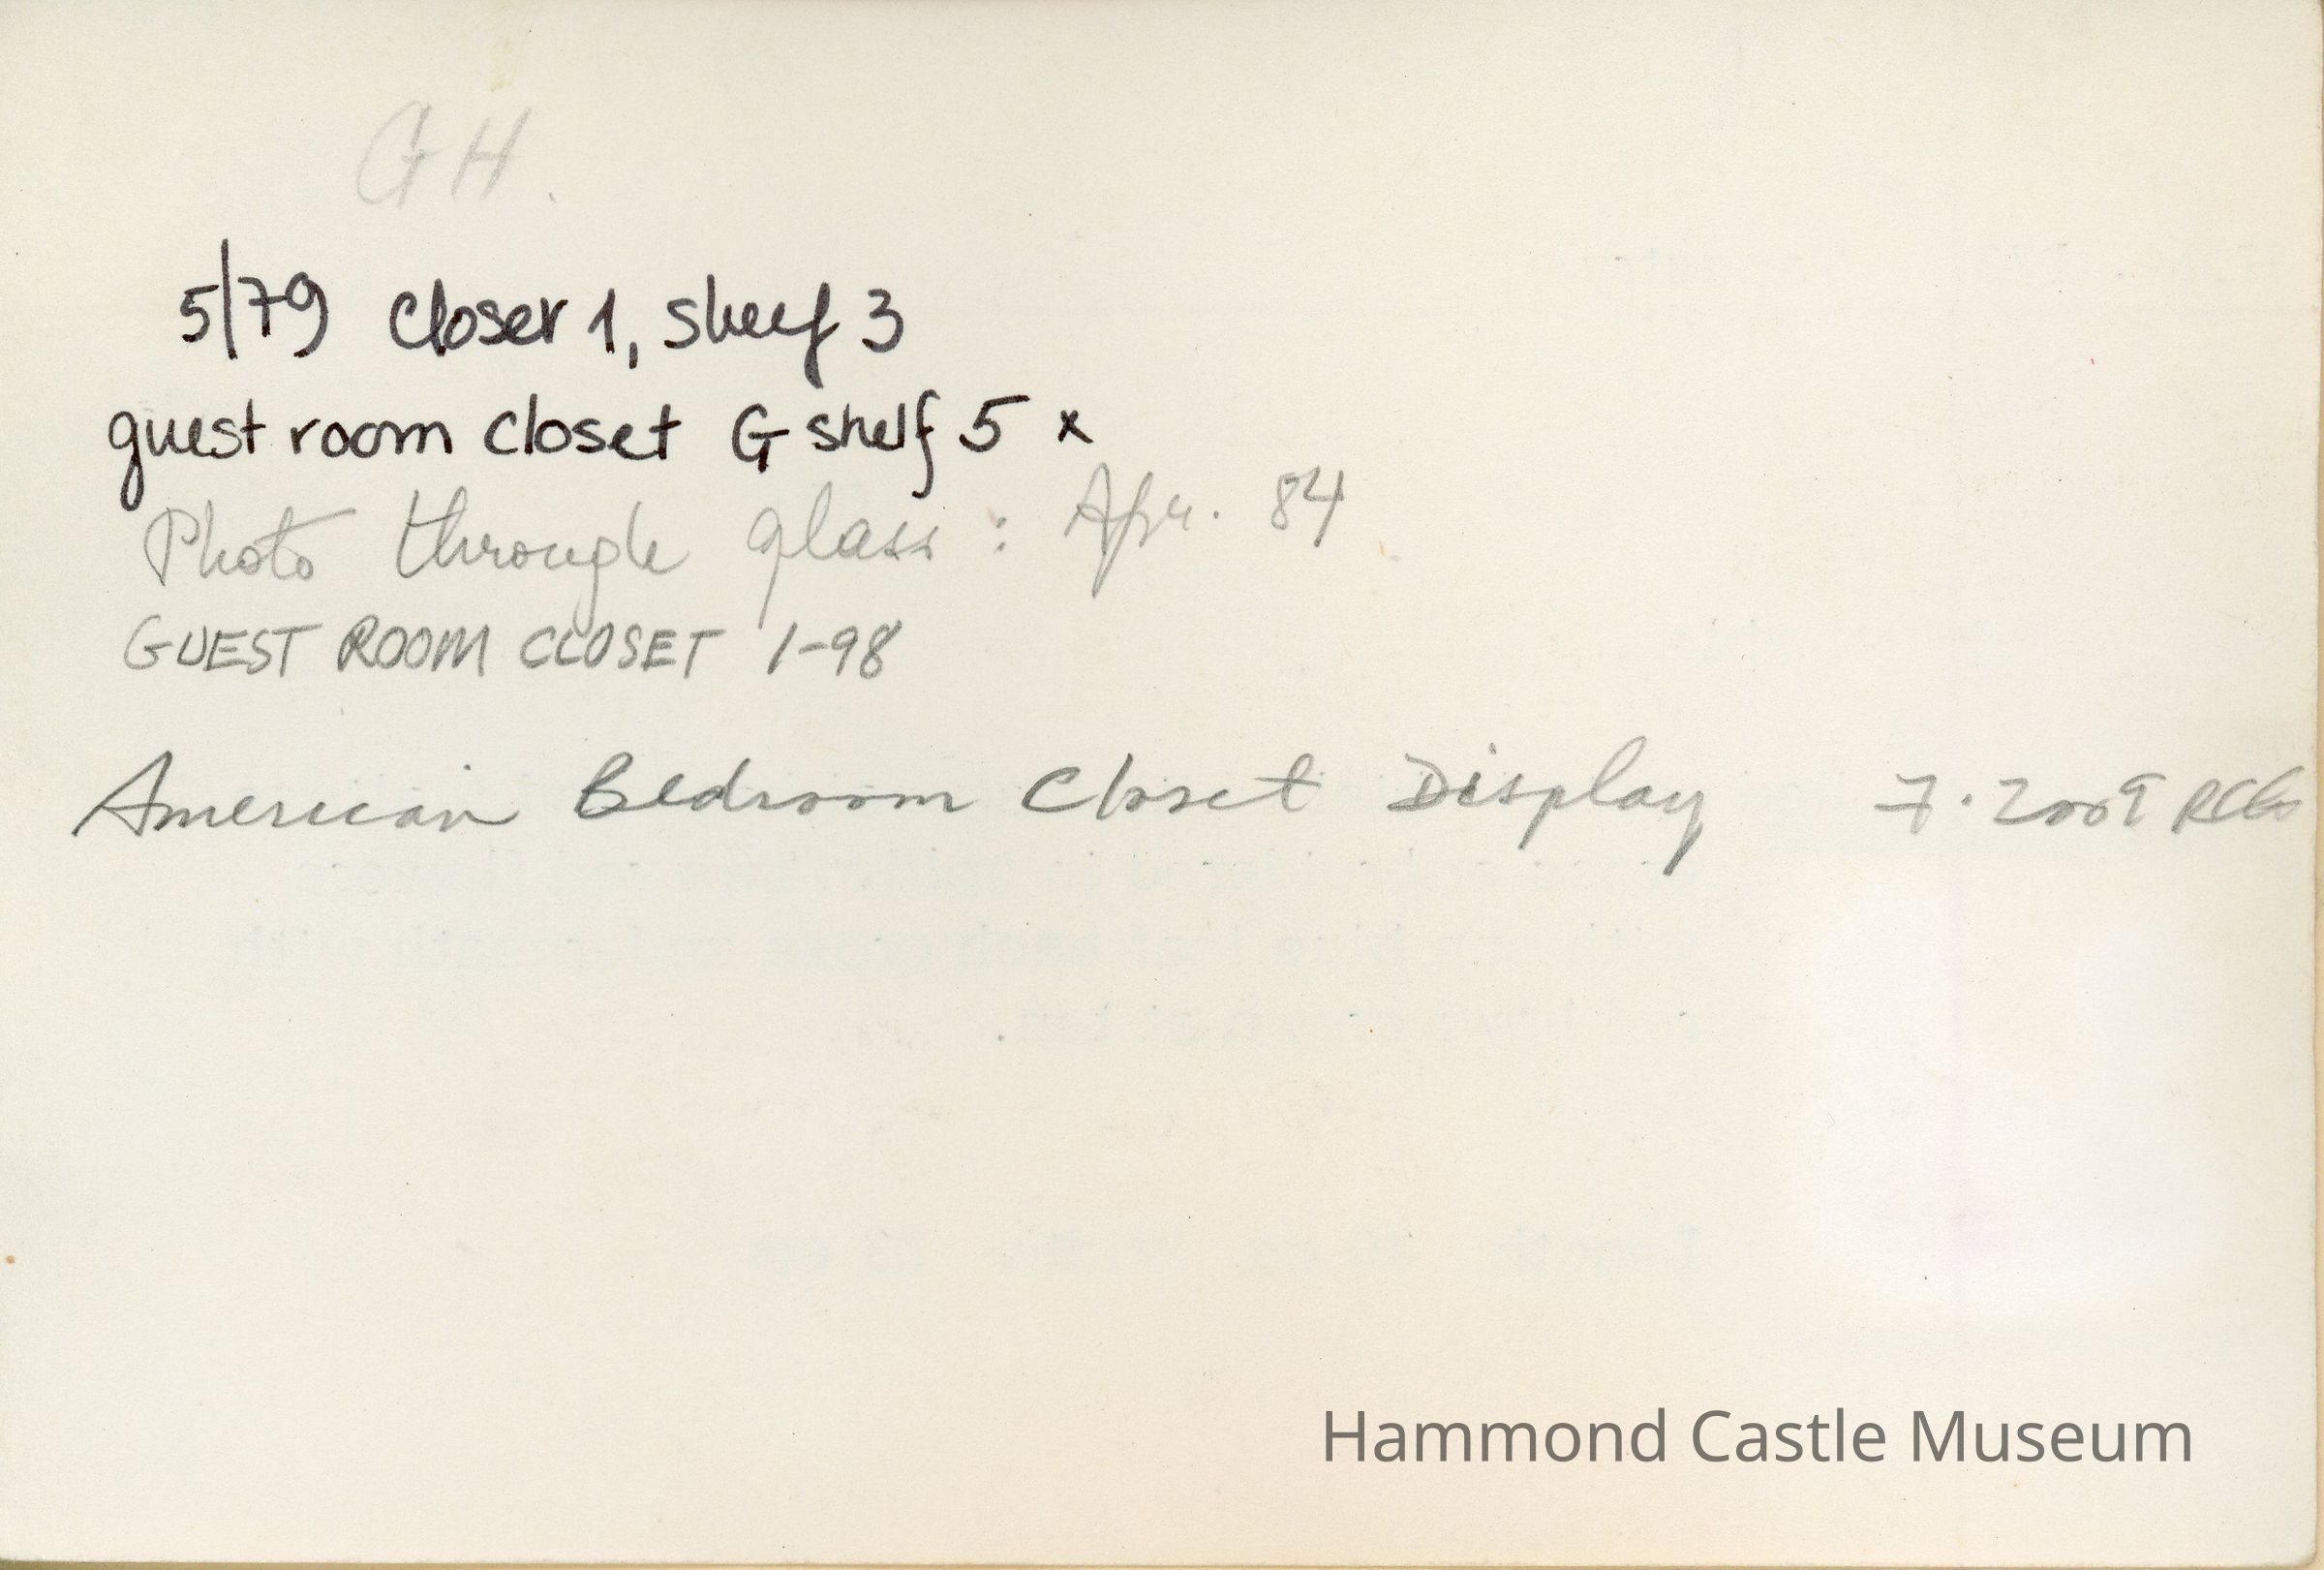 GH.
5/79 closet 1, shelf 3
guest room closet G shelf 5 x
Photo through glass : Apr. 84
GUEST ROOM CLOSET 1-98
American Bedroom Closet Display 7.2009
Hammond Castle Museum